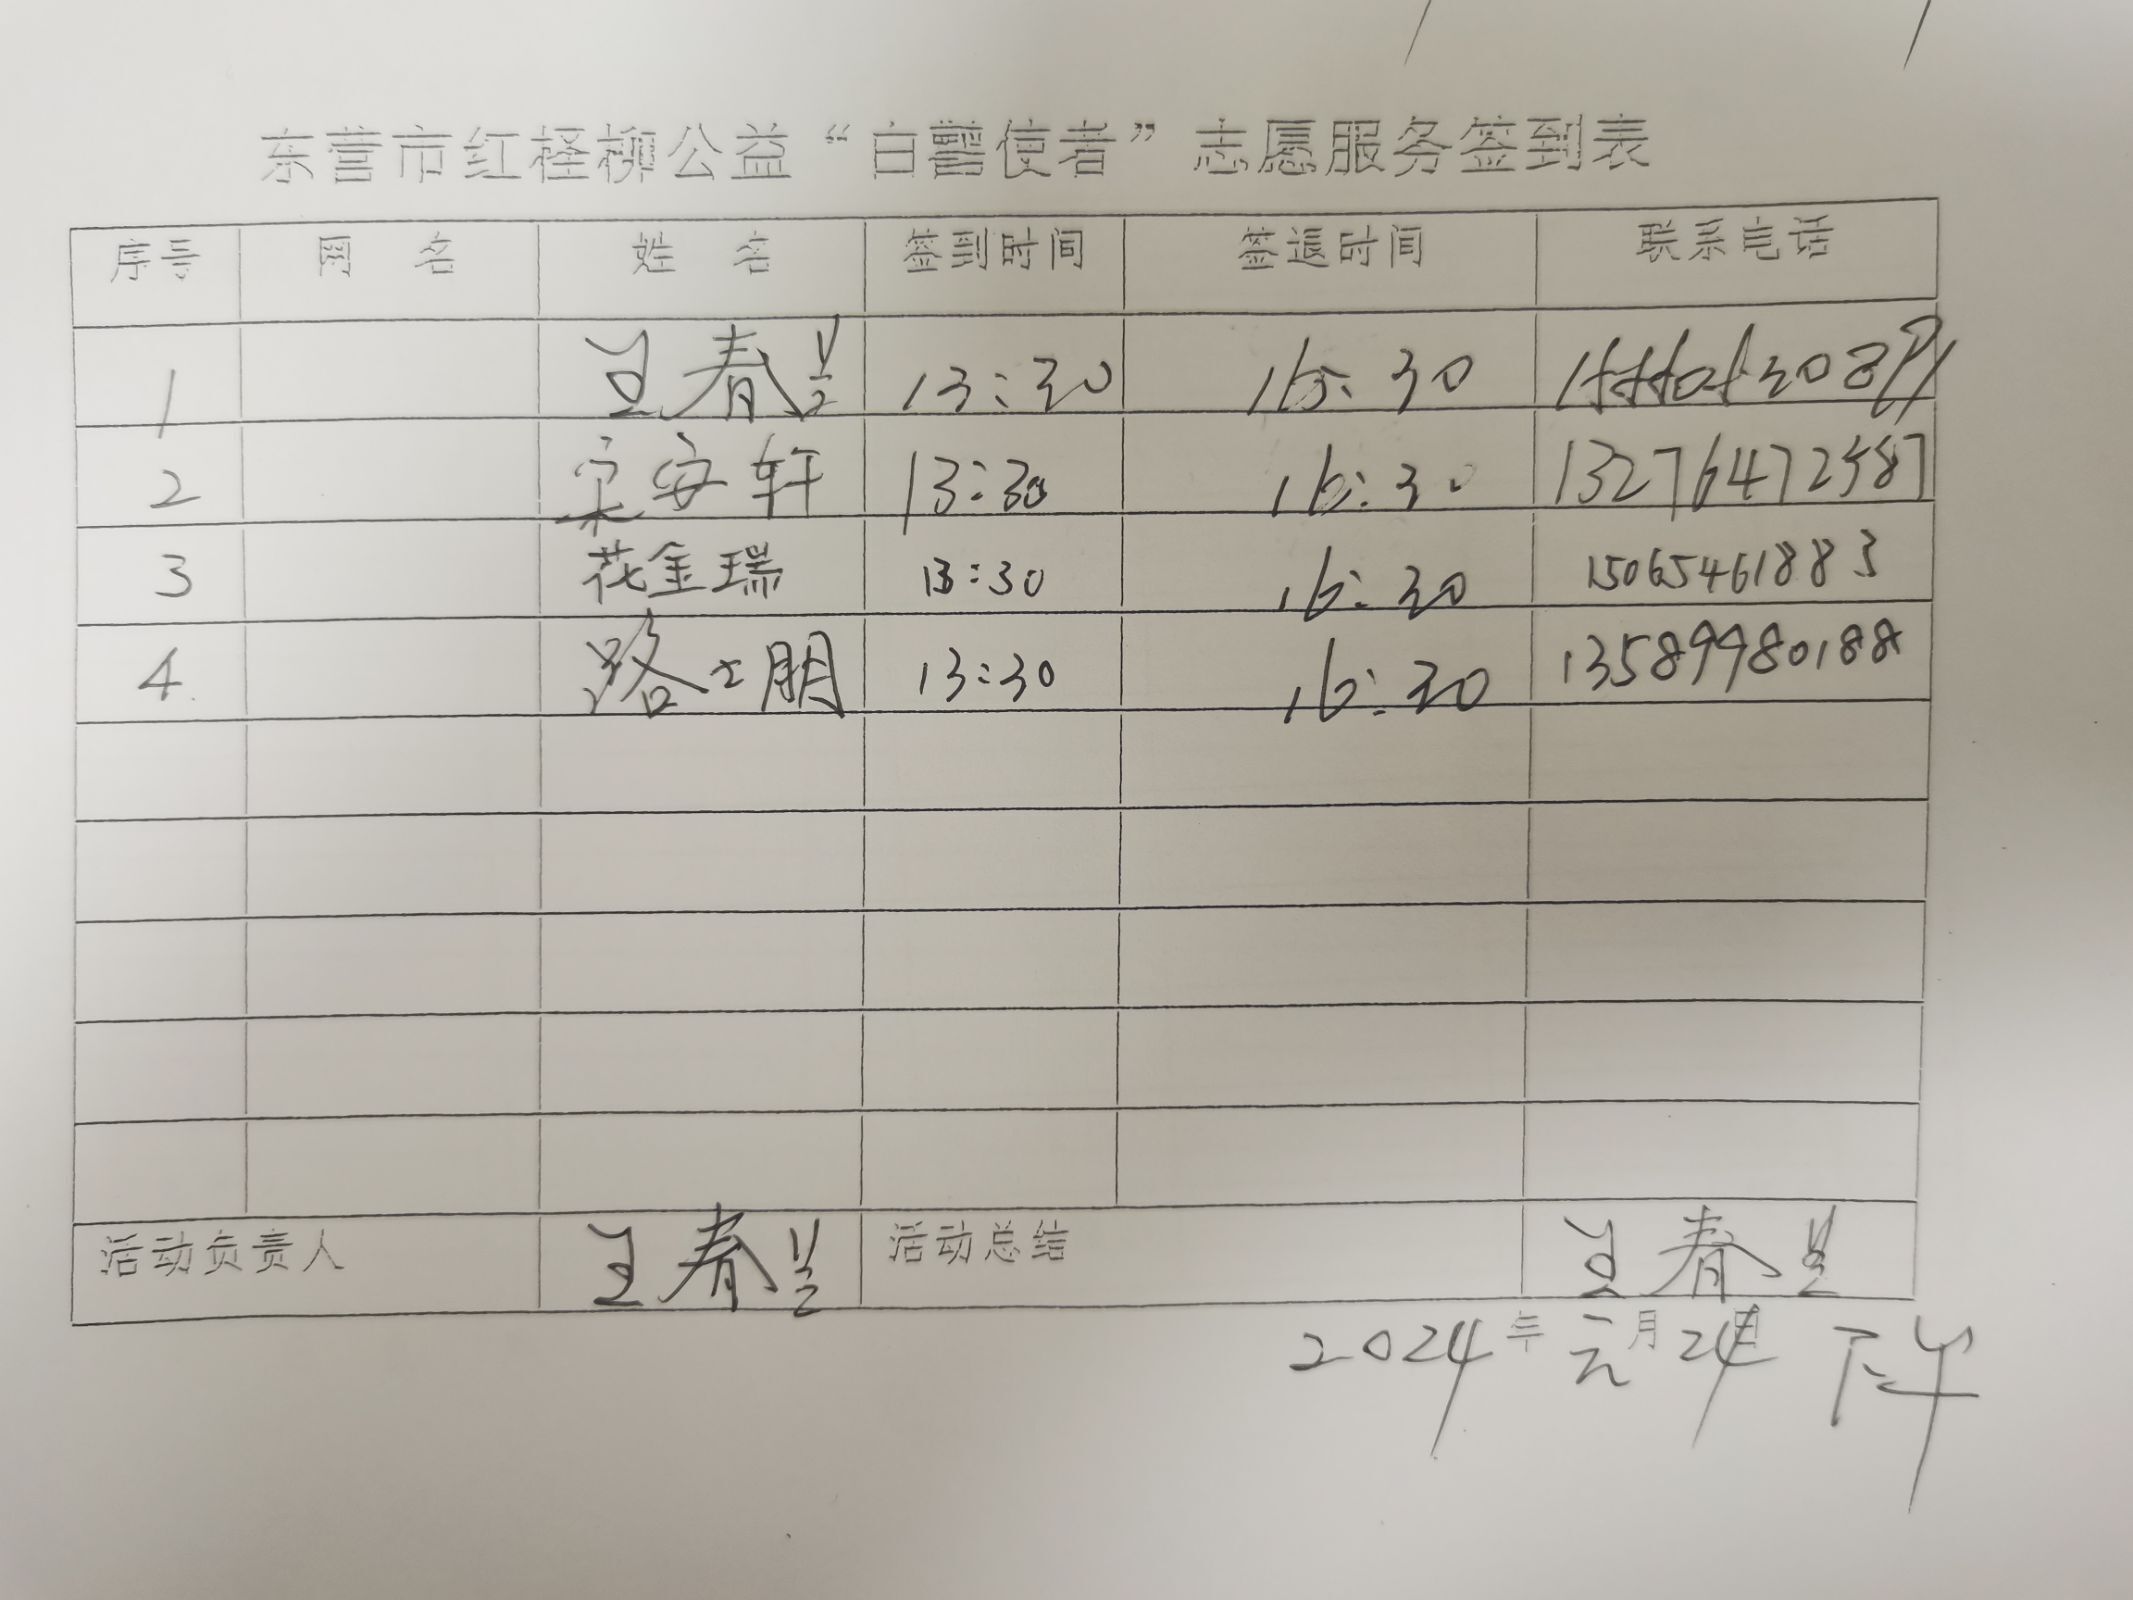 东营市红柽柳公益“白鹭使者”志愿服务签到表
序号 网名 姓名 签到时间 签退时间 联系电话
1 王春兰 13:30 16:30
2 宋安轩 13:30 16:30 13276472587
3 花金瑞 13:30 16:30 15065461883
4 路士朋 13:30 16:30 13589980188
活动负责人 王春兰 活动总结 王春兰
2024年元月24日 下午